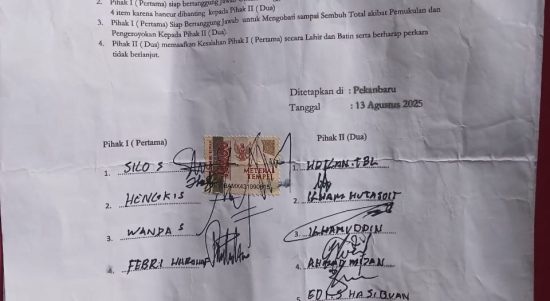 2. Pihak I ( Pertama) siap bertanggung jawab
4 item karena hancur dibanting kepada Pihak II (Dua)
3. Pihak I ( Pertama) Siap Bertanggung Jawab untuk Mengobati sampai Sembuh Total akibat Pemukulan dan
Pengeroyokan Kepada Pihak II (Dua)
4. Pihak II (Dua) memaafkan Kesalahan Pihak I ( Pertama) secara Lahir dan Batin serta berharap perkara
tidak berlanjut.
Ditetapkan di : Pekanbaru
Tanggal : 13 Agustus 2025
Pihak I ( Pertama)
Pihak II (Dua)
1. SILO S
2. HENGKIS
3. WANDA S
4. FEBRI
METERAI
TEMPEL
1.
2. ILHAM HUTASOIT
3. ILHAMUDDIN
4. AHMAD
5. EDI S HASIBUAN